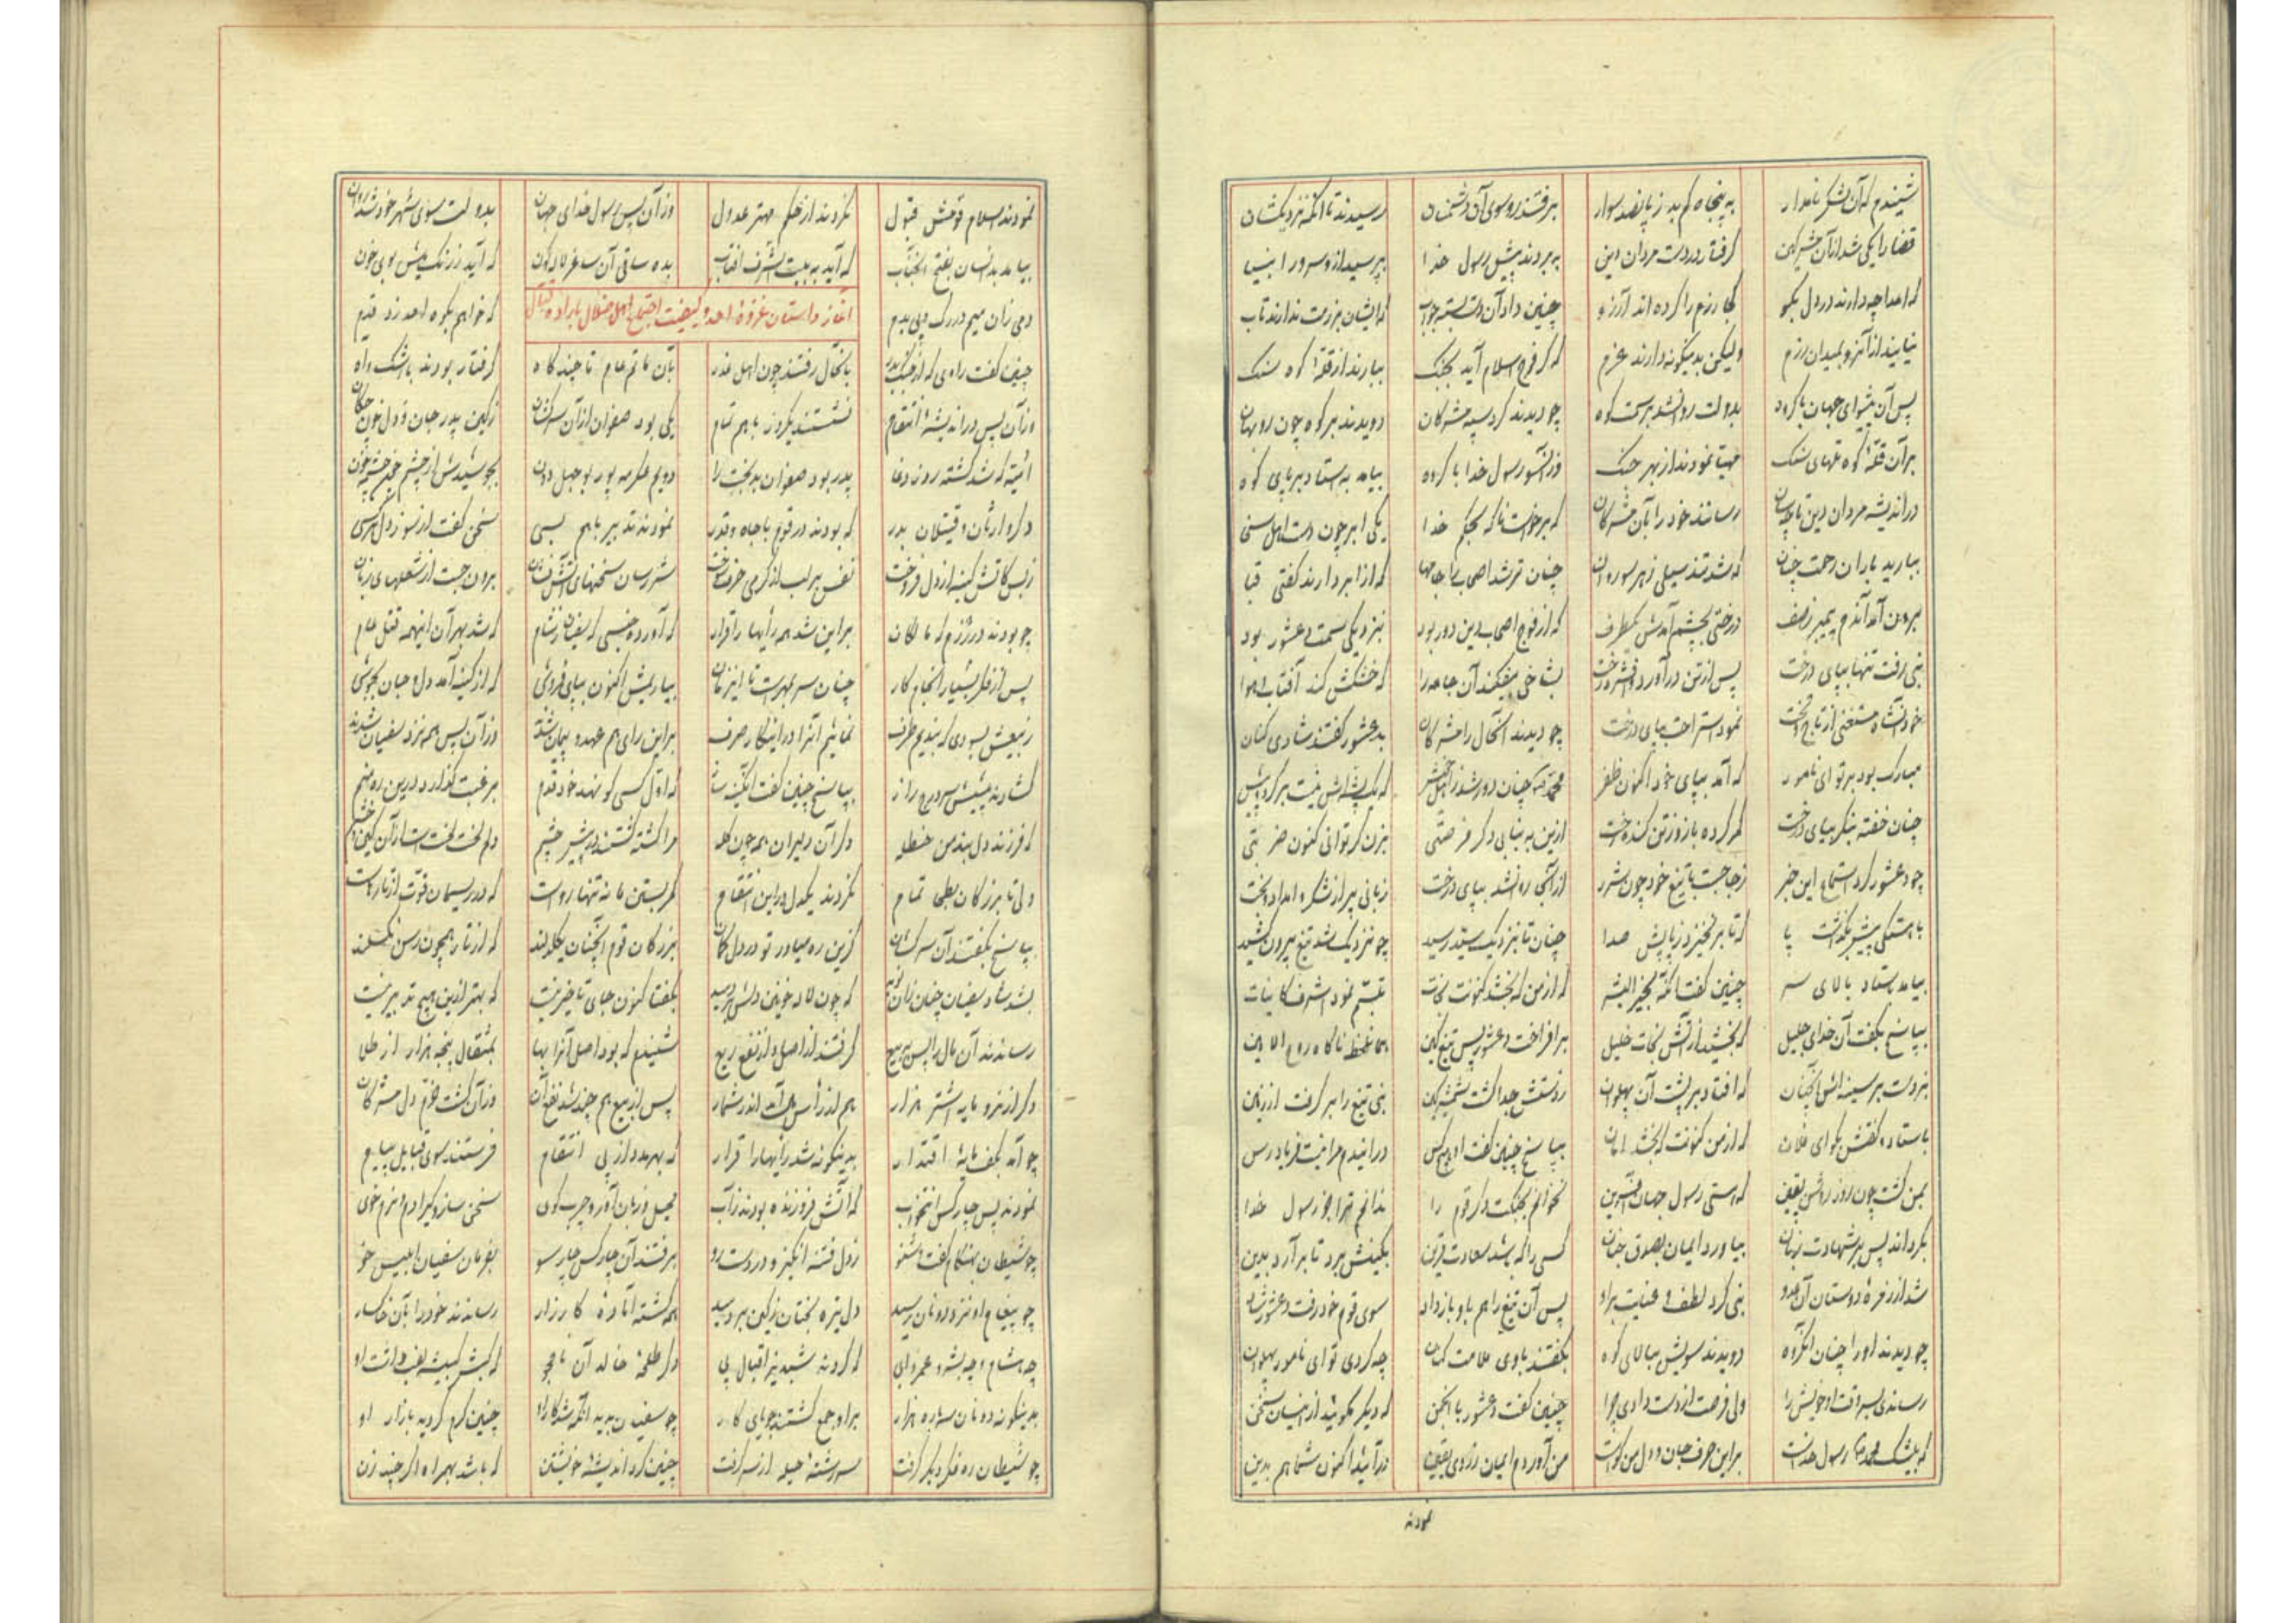 شنیدم که آن لشکر نامدار به پنجاه کم بد ز پانصد سوار برفتند رو سوی آن دشمنان رسیدند تا آنکه نزدیکشان
قضا را یکی شد از آن مشرکین گرفتار در دست مردان دین ببردند پیش رسول خدا بپرسید از او سرور انبیا
که اعدا چه دارند در دل بگو کجا رزم را کرده اند آرزو چنین داد آن دست بسته جواب که ایشان برزمت ندارند تاب
نیایند از آنرو بمیدان رزم ولیکن بدینگونه دارند عزم که گر فوج اسلام آید بجنگ ببارند از قلهٔ کوه سنگ
پس آن پیشوای جهان با گروه بدولت روان شد بر سمت کوه چو دیدند گرد سپه مشرکان دویدند بر کوه چون روبهان
بر آن قلهٔ کوه تلهای سنگ مهیا نمودند از بهر جنگ وز آنسو رسول خدا با گروه بیامد به استاد بر پای کوه
در اندیشه مردان دین تا چسان رسانند خود را بآن مشرکان که برخواست ناگه بحکم خدا یکی ابر چون دست اهل سخی
ببارید باران رحمت چنان که شد تند سیلی ز هر سو روان چنان تر شد اصحاب را جامها که از ابر دارند گفتی قبا
برون آمد آندم پیمبر ز صف درختی بچشم آمدش یکطرف که از فوج اصحاب دین دور بود بنزدیکی سمت دعثور بود
نبی رفت تنها بپای درخت پس از تن درآورد و فشرد رخت بشاخی بیفکند آن جامه را که خشکش کند آفتاب و هوا
خود آنشاه مستغنی از تاج و تخت نمود استراحت بپای درخت چو دیدند آنحال را مشرکان بدعثور گفتند شادی کنان
مبارک بود بر تو ای نامور که آمد بپای خود اکنون ظفر محمد چنان دور شد ز اهل خویش که یک پشه اش نیست بر گرد پیش
چنان خفته بنگر بپای درخت کمر کرده باز و ز تن کنده رخت ازین به نیابی دگر فرصتی بزن گر توانی کنون ضربتی
چو دعثور کرد استماع این خبر ز جا جست با تیغ خود چون شرر از آنجا روان شد بپای درخت زبانی پر از شکر و امداد بخت
باهستگی پیش بگذاشت پا که تا بر نخیزد ز پایش صدا چنان تا بنزدیک سید رسید چو نزدیک شد تیغ بیرون کشید
بیامد ستاد بالای سر چنین گفتا که خیر البشر که از من که بخشد کنونت نجات تبسم نمود اشرف کاینات
بپاسخ بگفت آن خدای جلیل که بخشید از آتش نجات خلیل برافراخت دعثور پس تیغ کین همان لحظه ناگاه روح الامین
بزد دست بر سینه اش آنچنان که افتاد بر پشت آن پهلوان ز دستش جدا گشت شمشیر کین نبی تیغ را بر گرفت از زمین
باستاد و گفتش بگو ای فلان که از من کنونت که بخشد امان بپاسخ چنین گفت او هیچکس درایندم مرا نیست فریادرس
بمن گشت چون روز روشن یقین که هستی رسول جهان آفرین نخوانم بجنگت دگر قوم را ندانم ترا جز رسول خدا
بگرداند پس بر شهادت زبان بیاورد ایمان بصدق جنان کسی را که باشد سعادت قرین بکینش برد تا برآرد بدین
شد از زمرهٔ دوستان آن عدو نبی کرد لطف و عنایت بر او پس آن تیغ را هم باو باز داد سوی قوم خود رفت دعثور شاد
چو دیدند او را چنان آنگروه دویدند سویش ببالای کوه بگفتند باوی ملامت کنان چه کردی تو ای نامور پهلوان
رساندی بسر وقت او خویش را ولی فرصت از دست دادی چرا چنین گفت دعثور با انجمن که دیگر مگوئید از اینسان سخن
که بیشک محمد رسول خداست براین حرف جان و دل من گواست من آوردم ایمان ز روی یقین درآئید اکنون شما هم بدین
نمودند
نمودند اسلام قومش قبول نکردند از حکم مهتر عدول وز آن پس رسول خدای جهان بدولت سوی شهر خود شد روان
بیامد بدانسان بفتح الجناب که آید به بیت الشرف آفتاب بده ساقی آن ساغر لاله گون که آید ز رنگ میش بوی خون
دمی زان میم در رگ و پی بدم که خواهم بکوه احد زد قدم
آغاز داستان غزوهٔ احد و کیفیت اجتماع اهل ضلال باراده قتال
چنین گفت راوی که از جنگ بدر بآنحال رفتند چون اهل غدر بآن ماتم عام تا چند گاه گرفتار بودند با اشک و آه
وز آن پس در اندیشهٔ انتقام نشستند یکروز باهم تمام یکی بود صفوان از آن سرکشان ز کین پدر جان و دل خون چکان
امیه که شد کشته روز وغا پدر بود صفوان بدبخت را دویم عکرمه پور بوجهل دون بجوشیدش از چشم چشمه خون
دگر وارثان قتیلان بدر که بودند در قوم با جاه و قدر نمودند تدبیر باهم بسی سخن گفت از سوز دل هر کسی
ز بس کاتش کینه از دل فروخت نفس بر لب از گرمی حرف سوخت شرر سان سخنهای آتش فشان برون جست از شعلهای زبان
چو بودند در رزم که ماکان بر این شد همه رأیها را قرار که آورده جنسی که سفیان ز شام که شد بهر آن اینهمه قتل عام
پس از فکر بسیار انجام کار چنان سر بمهر است تا این زمان بیاریمش اکنون بپای فروش که از کینه آمد دل و جان بجوش
ز بیعش بسودی که بندیم طرف نمائیم آنرا در اینکار صرف براین رای هم عهد و پیمان شدند وز آن پس همه نزد سفیان شدند
گشادند پیشش سر درج راز بپاسخ چنین گفت که اول کسی کو نهد خود قدم برغبت گذارد درین ره منم
که فرزند دلبند من حنظله دگر آن دلیران همه چون گله مرا کشته گشتند در پیش چشم دلم لخت لخت است از آن کین و خشم
ولی تا بزرگان بطحی تمام نگردند یکدل در این انتقام کمر بستن ما نه تنها رواست که در ریسمان قوت از تارهاست
بپاسخ بگفتند آن سرکشان کزین ره میاور تو در دل گمان بزرگان قوم آنچنان یکدلند که از تار همچون رسن نگسلند
بشد شاد سفیان چنان زان نوید که چون لاله خونین دلش بردمید بگفتا کنون جای تاخیر نیست که بهتر ازین هیچ تدبیر نیست
رساندند آن مال را پس به بیع گرفتند از اصل و از نفع ریع شنیدم که بود اصل آنرا بها بمثقال پنجه هزار از طلا
دگر از نر و مایه اشتر هزار هم از راس مال آمد اندر شمار پس از بیع هم چند شد نفع آن وز آن گشت خرم دل مشرکان
چو آمد بکف مایهٔ اقتدار بدینگونه شد رأیها را قرار که بهر مدد از پی انتقام فرستند سوی قبایل پیام
نمودند پس چار کس انتخاب که آتش فروزنده بودند ز آب محیل و زبان آور و چرب گوی سخن ساز و گیرا دم و نرم خوی
چو شیطان بهنگام گفت و شنو ز دل فتنه انگیز و در دست رو برفتند آن چار کس چار سو بفرمان سفیان ابلیس خو
چو پیغام او نزد دونان رسید دل تیره بختان ز کین بردمید همه گشته آمادهٔ کارزار رساندند خود را بآن خاکسار
چه هشام و چه بشه و عمر و ابی که کردند شبدیز اقبال پی دگر طلحهٔ خالد آن نامجو که کبش کتیبه لقب داشت او
بدینگونه دونان سه باره هزار بر او جمع گشتند جویای کار چو سفیان بدید آنکه شد کار او چنین گرم گردید بازار او
چو شیطان ره فکر دیگر گرفت سر رشتهٔ حیله از سر گرفت چنین کرد اندیشهٔ خویشتن که باشد بهمراه اگر چند زن